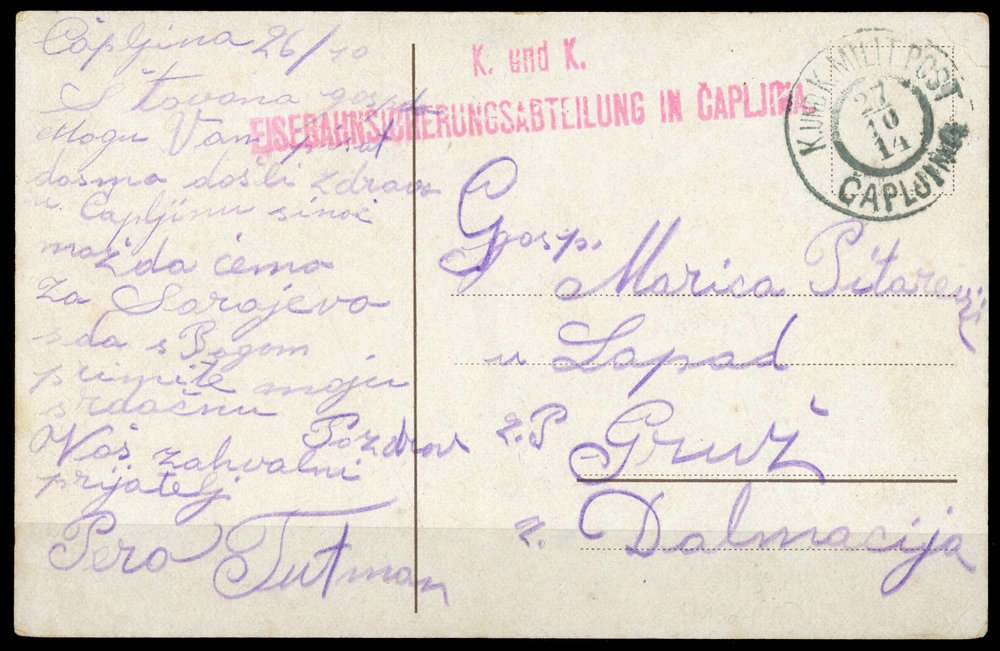 Čapljina 26/10
Štovana gospo
Mogu Vam pisat
dasmo došli zdravo
u Čapljinu sinoć
možda ćemo
za Sarajevo
sda s Bogom
primite moju
srdačnu
Pozdrav
Vaš zahvalni
prijatelj
Pero Tutman
K. und K.
EISEBAHNSICHERUNGSABTEILUNG IN ČAPLJINA
K. UND K. MILIT. POST
27
10
14
ČAPLJINA
Gosp.
Marica
u Lapad
z. P Gruž
z. Dalmacija